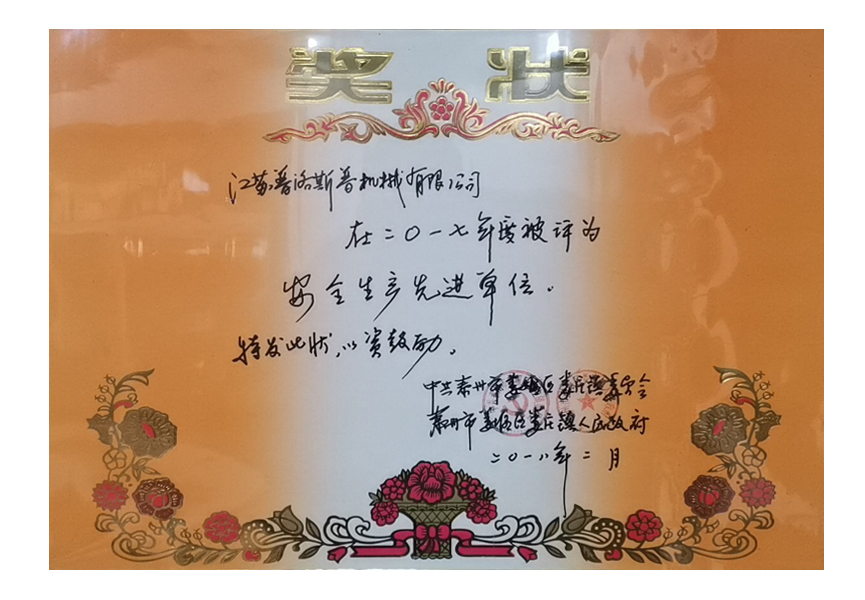 奖状
江苏普洛斯普机械有限公司
在二〇一七年度被评为
安全生产先进单位.
特发此状,以资鼓励。
中共泰州市姜堰区娄庄镇委员会
泰州市姜堰区娄庄镇人民政府
二〇一八年二月